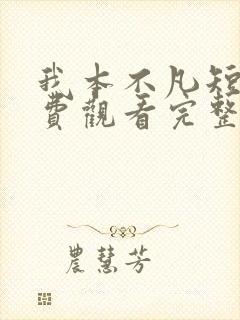 我本不凡短
費觀看完整
農慧芳